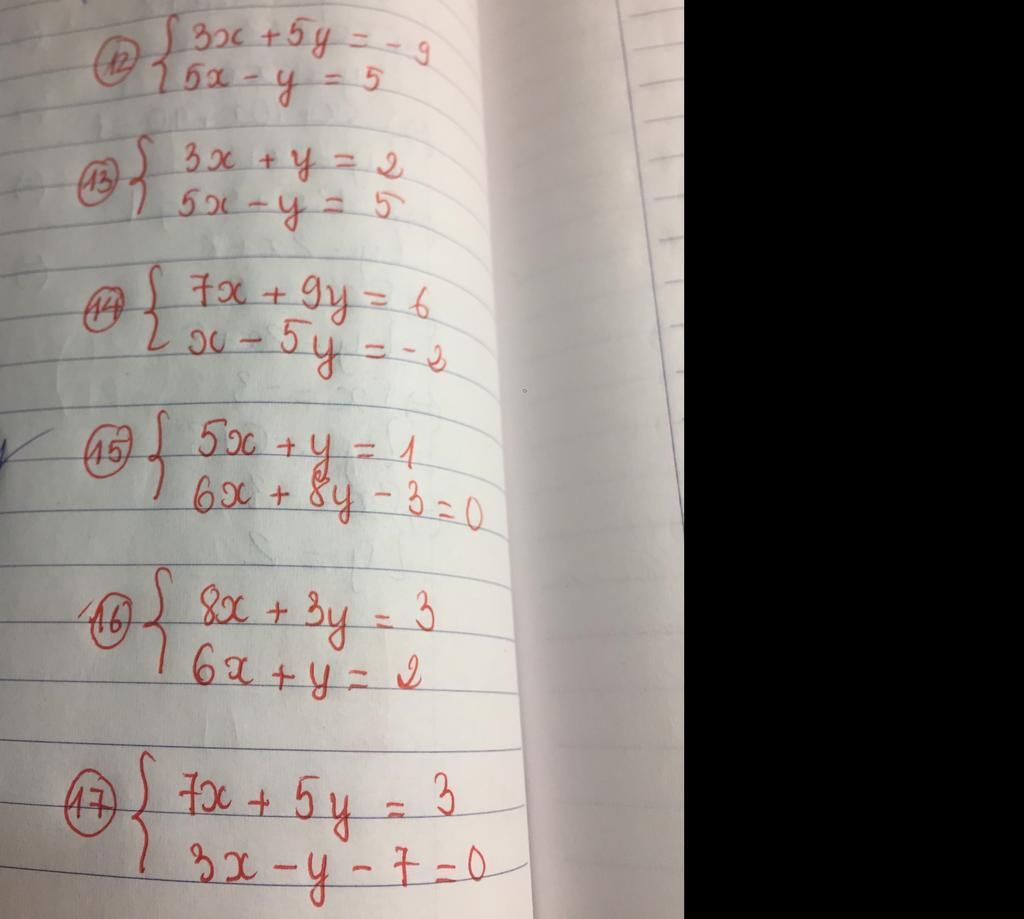 12 { 3x + 5y = - 9
5x - y = 5
13 { 3x + y = 2
5x - y = 5
14 { 7x + 9y = 6
x - 5y = - 2
15 { 5x + y = 1
6x + 8y - 3 = 0
16 { 8x + 3y = 3
6x + y = 2
17 { 7x + 5y = 3
3x - y - 7 = 0